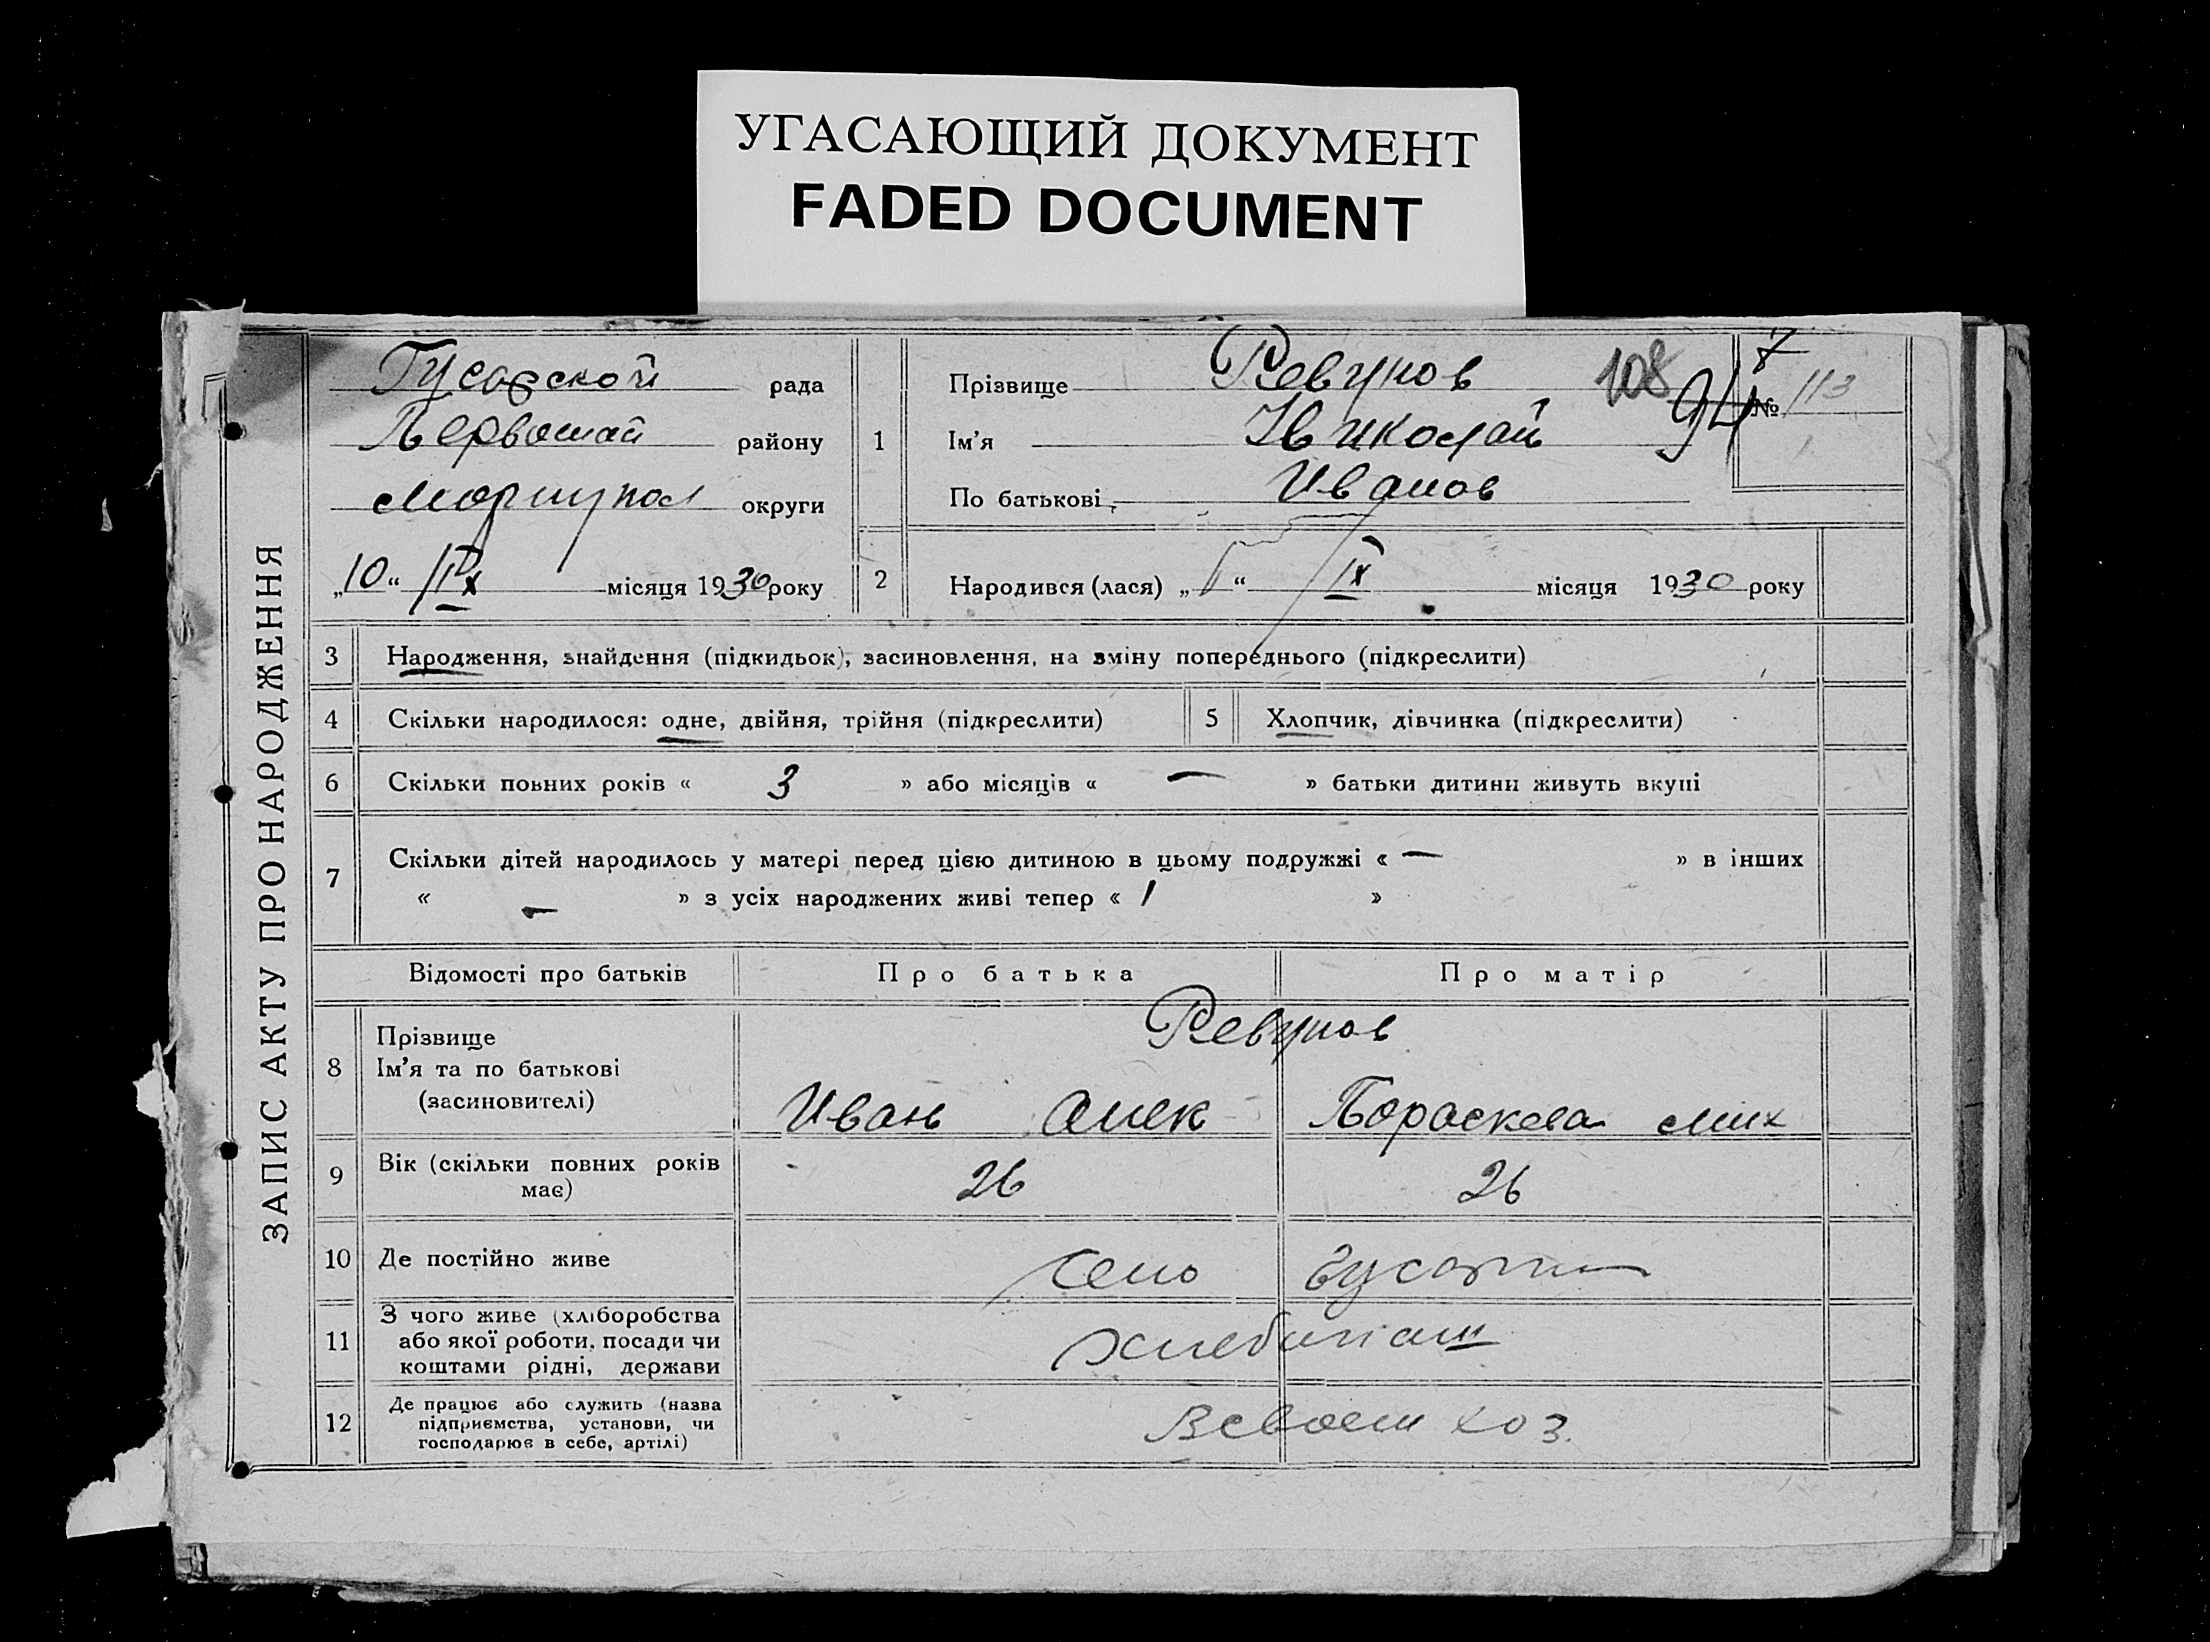 УГАСАЮЩИЙ ДОКУМЕНТ
FADED DOCUMENT
ЗАПИС АКТУ ПРО НАРОДЖЕННЯ
Гусарской рада
Первомай району
Мариупол округи
„10“ IX місяця 1930 року
1
Прізвище Ревунов
108
94
7
№ 113
Ім’я Николай
По батькові Иванов
2
Народився (лася) „ “ IX місяця 1930 року
3 Народження, знайдення (підкидьок), засиновлення, на зміну попереднього (підкреслити)
4 Скільки народилося: одне, двійня, трійня (підкреслити)
5 Хлопчик, дівчинка (підкреслити)
6 Скільки повних років « 3 » або місяців « — » батьки дитини живуть вкупі
7 Скільки дітей народилось у матері перед цією дитиною в цьому подружжі « — » в інших
« — » з усіх народжених живі тепер « 1 »
Відомості про батьків Про батька Про матір
8
Прізвище
Ім’я та по батькові
(засиновителі)
Ревунов
Иван Алек Параскева Мих
9
Вік (скільки повних років
має)
26 26
10 Де постійно живе
село
11
З чого живе (хліборобства
або якої роботи, посади чи
коштами рідні, держави
хлебопаш
12
Де працює або служить (назва
підприємства, установи, чи
господарює в себе, артілі)
В своем хоз.